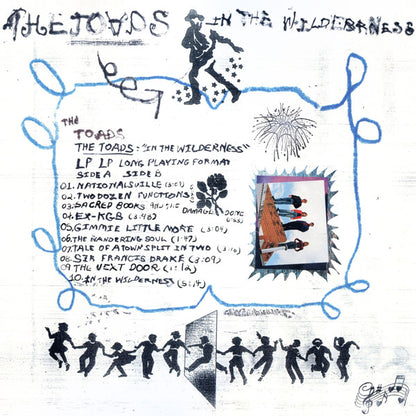 THE TOADS IN THE WILDERNESS
THE
TOADS
THE TOADS: "IN THE WILDERNESS"
LP LP LONG PLAYING FORMAT
SIDE A SIDE B
01. NATIONALSVILLE
02. TWO DOZEN FUNCTIONS
03. SACRED BOOKS
DAMAGE DONE
04. EX-KGB (3:48)
05. GIMMIE LITTLE MORE (3:04)
06. THE WANDERING SOUL (1:47)
07. TALE OF A TOWN SPLIT IN TWO
08. SIR FRANCIS DRAKE (3:09)
09 THE NEXT DOOR
10. IN THE WILDERNESS (5:14)